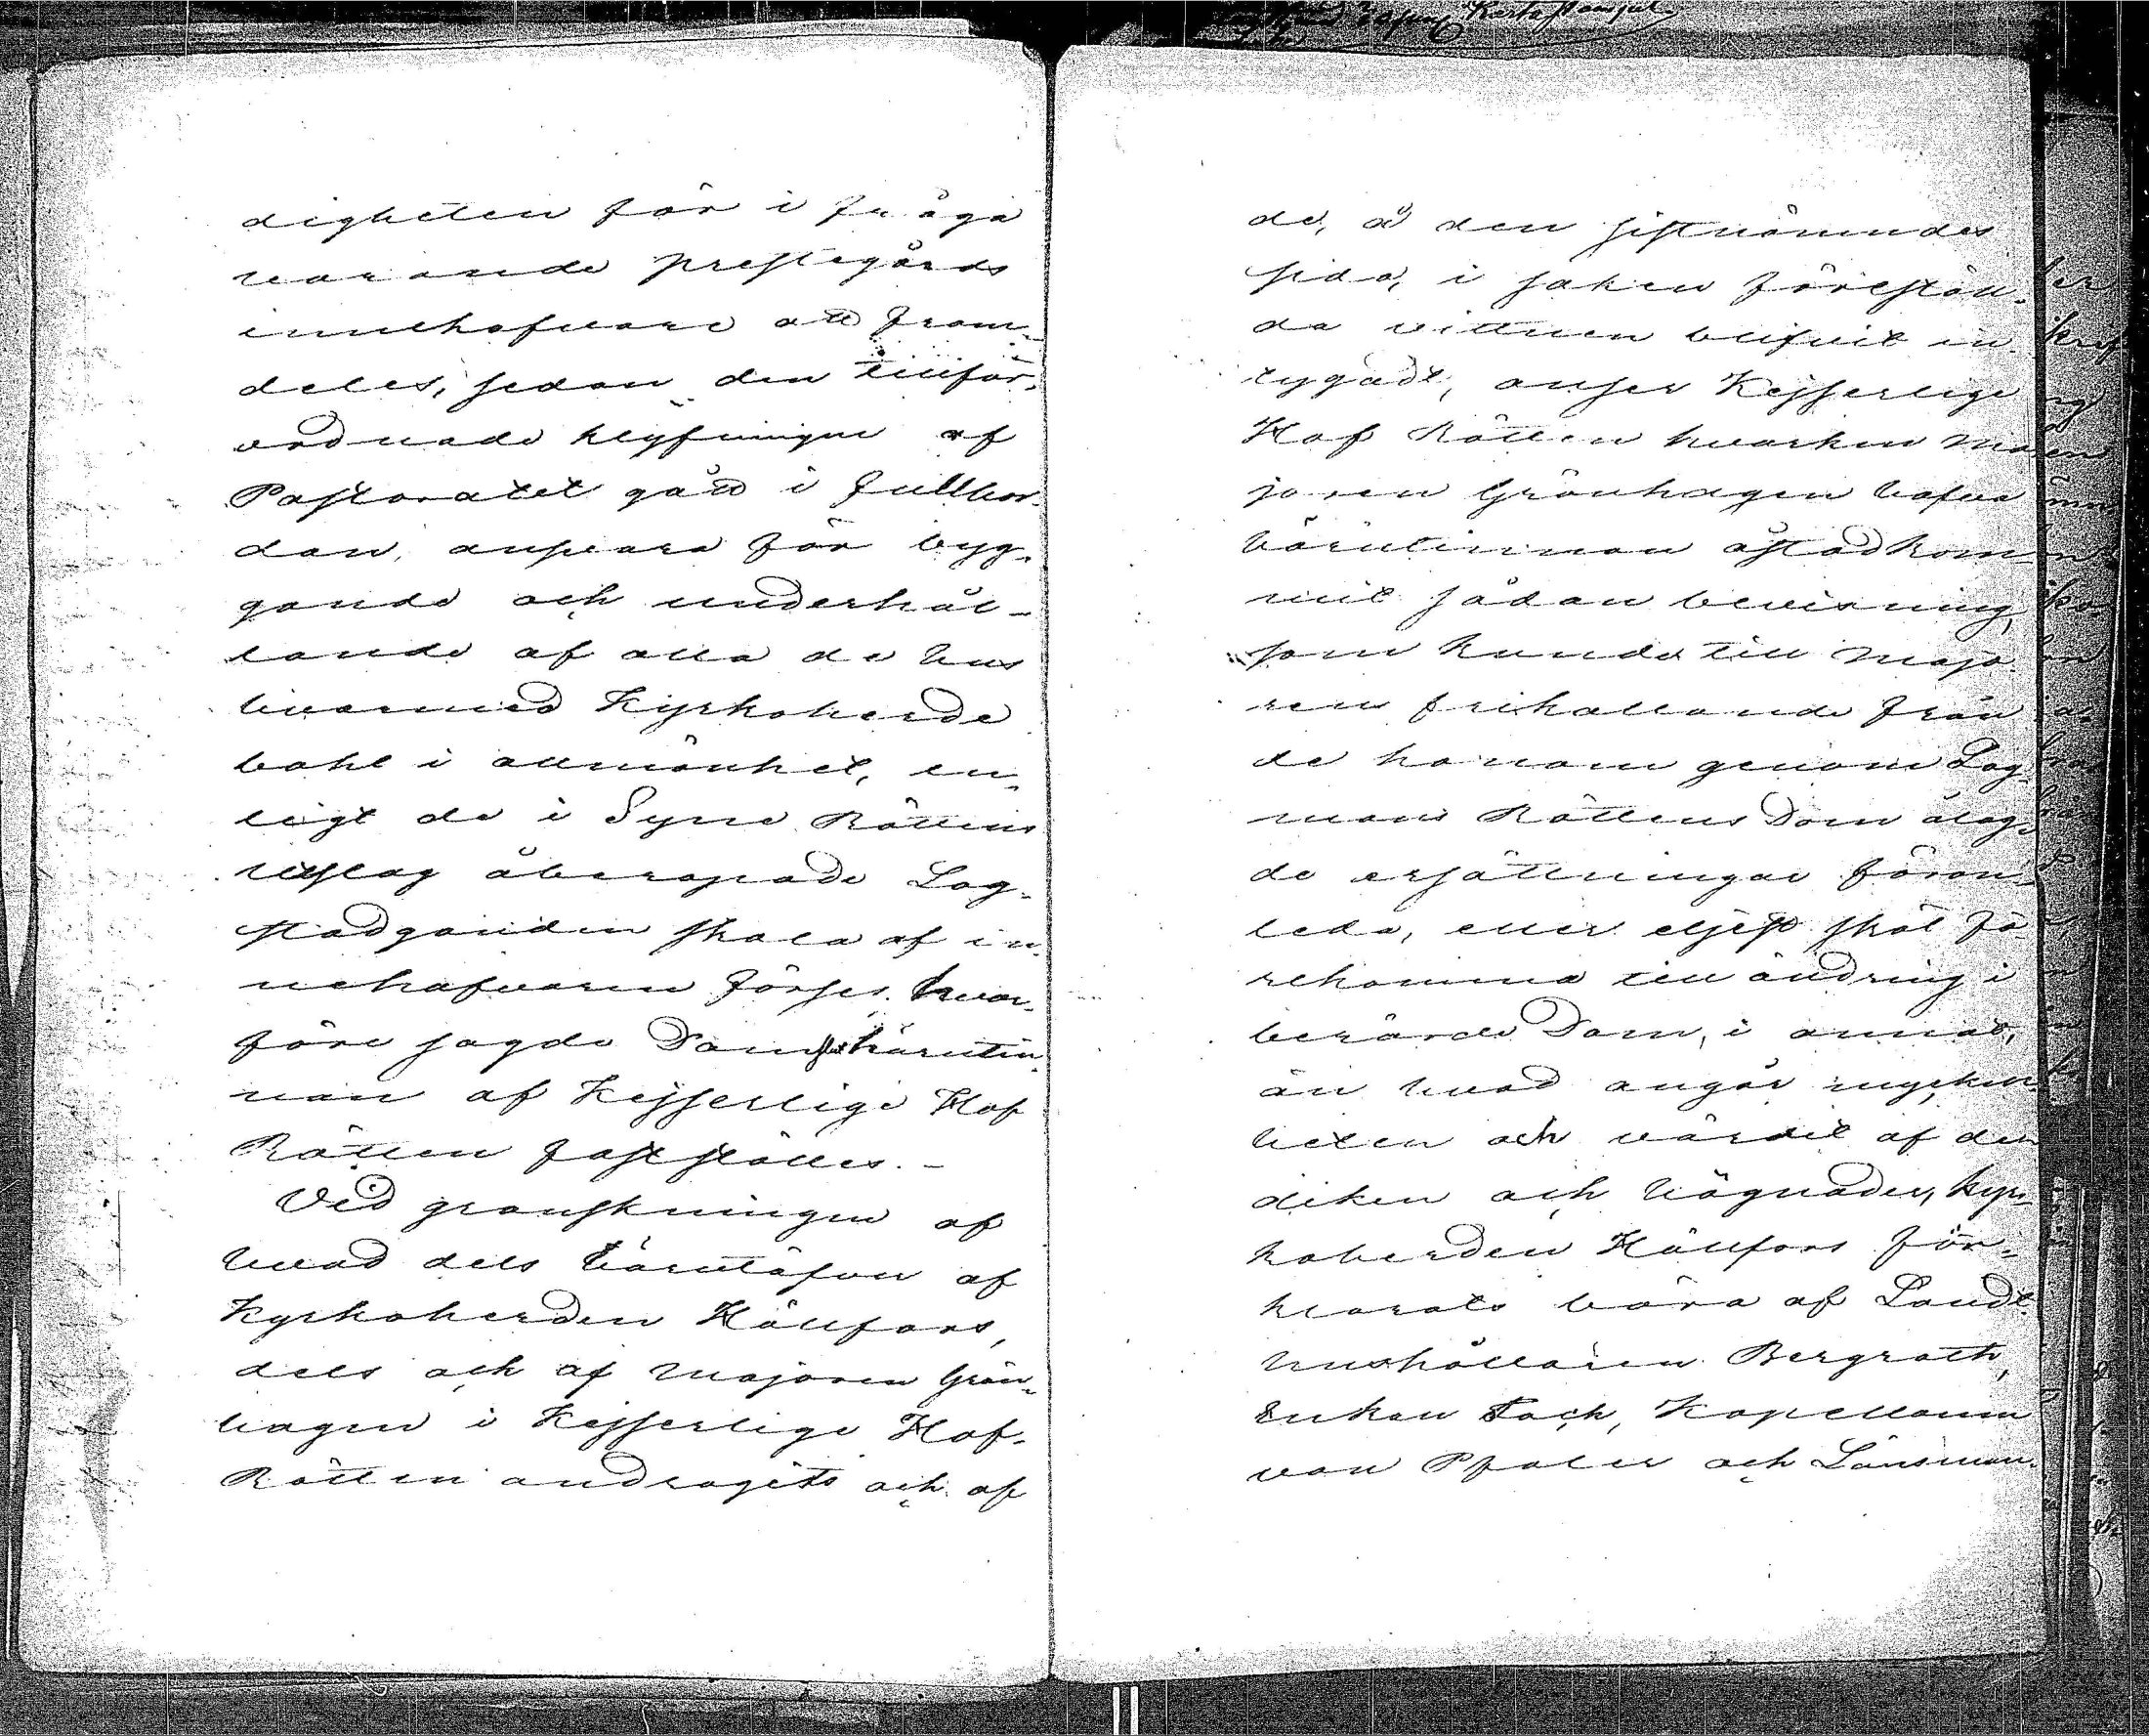 digheten för i fråga
varande prestegårds
innehafvare att fram-
deles, sedan den tillför-
ordnade klyfningen af
Pastoratet gått i fullbor-
dan, ansvara för byg-
gande och underhål-
lande af alla de hus
hvarmed Kyrkoherde
bohl i allmänhet, en-
ligt de i Syne Rättens
utslag åberopade Lag-
stadganden skola af in-
nehafvaren förses. hvar-
före sagde Dom härutin-
nan af Kejserlige Hof
Rätten fastställes. -
Vid granskningen af
hvad dels härutöfver af
Kyrkoherden Hällfors,
dels och af Majoren Grön-
hagen i Kejserlige Hof-
Rätten andragits och af
de, å den sistnämndes
sida, i saken föreställ-
da vittnen blifvit in-
tygadt, anser Kejserlige
Hof Rätten hvarken Ma-
joren Grönhagen hafva
härutinnan åstadkom-
mit sådan bevisning,
som kunde till Majo-
rens frikallande från
de honom genom Lag-
mans Rättens Dom ålag-
de ersättningar föran-
leda, eller eljest skäl fö-
rekomma till ändring i
berörde Dom, i annat,
än hvad angår mycken-
heten och värdet af den
diken och hägnader, Kyr-
koherden Hällfors för-
klarats böra af Landt-
hushållaren Bergroth,
Enkan Foch, Kapellanen
von Pfaler och Länsman-